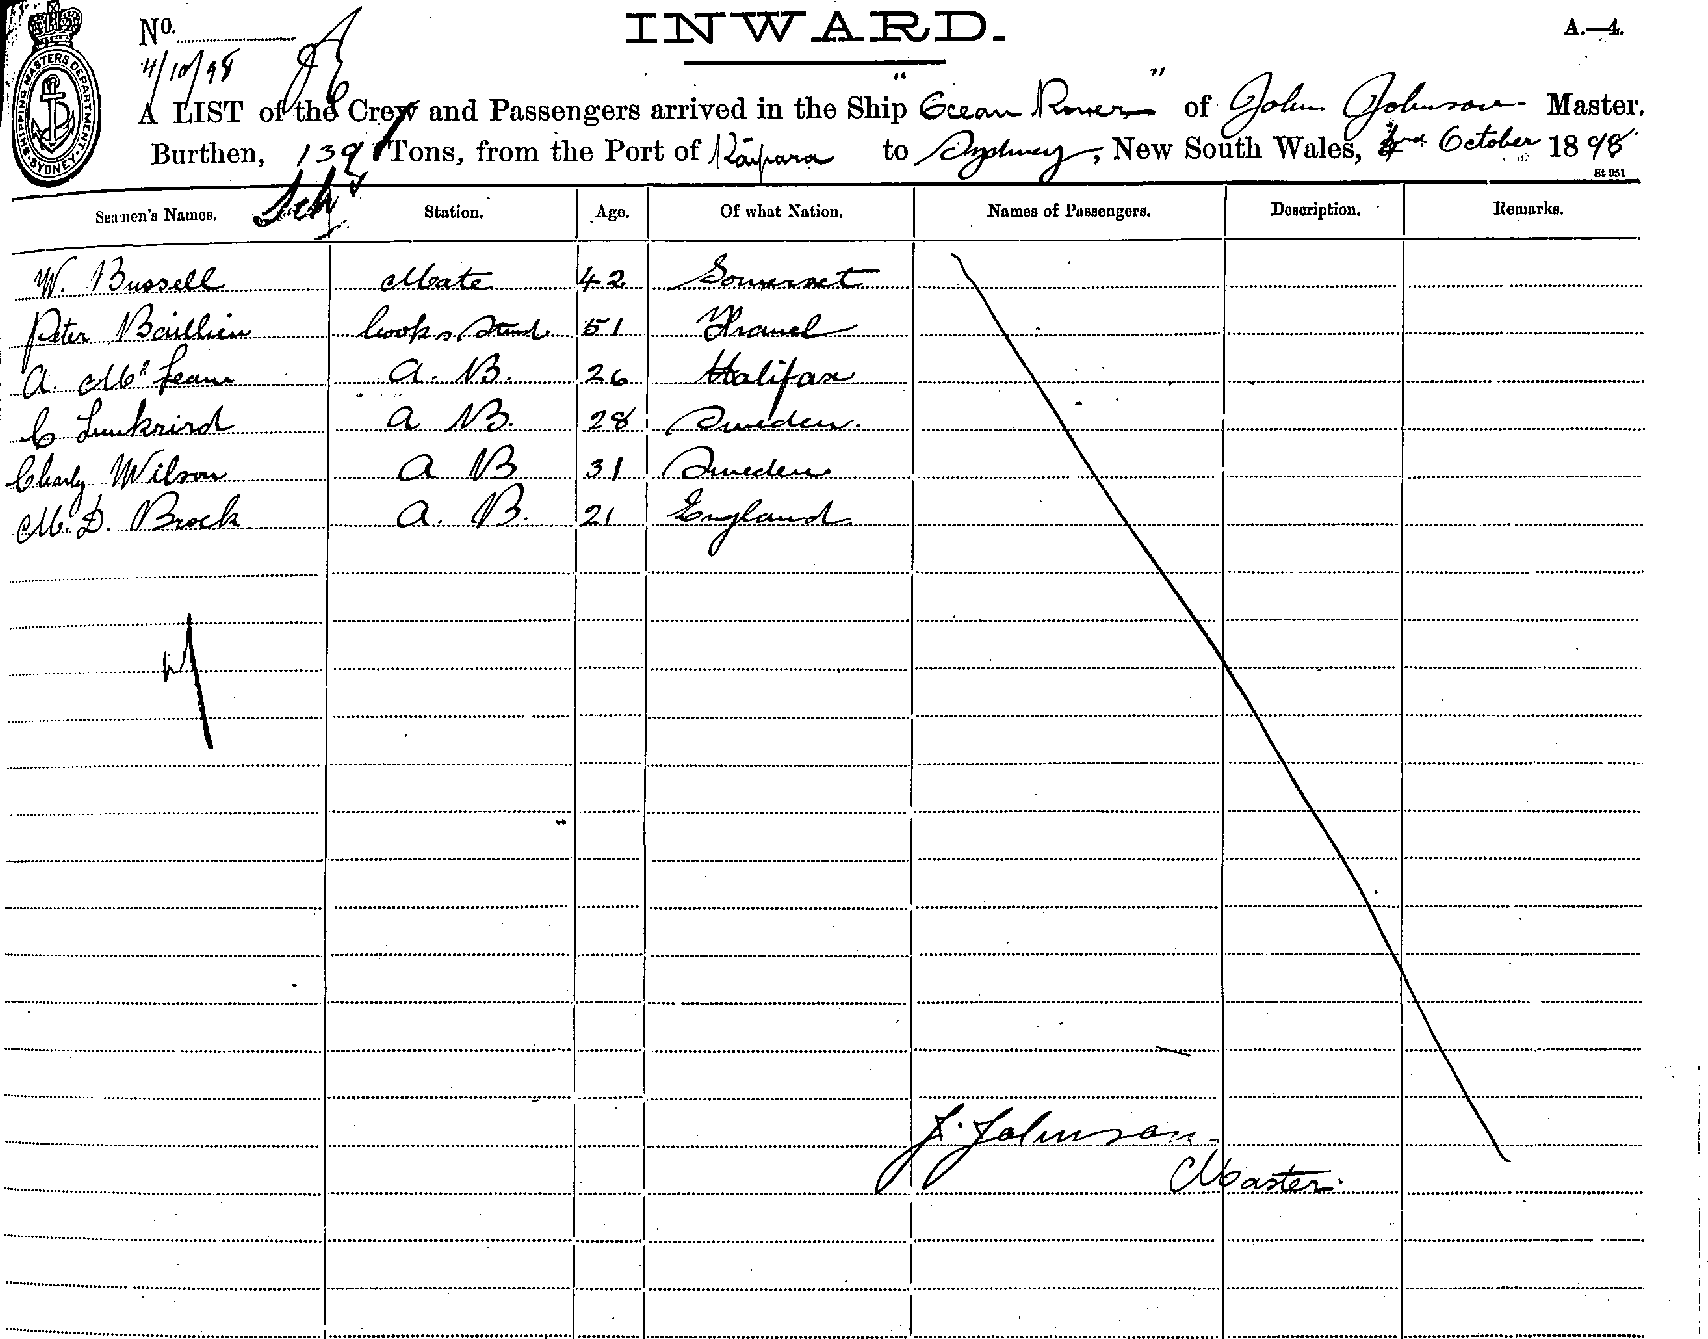 INWARD.
A.—4.
No.
4/10/98
SHIPPING MASTERS DEPARTMENT. SYDNEY.
A LIST of the Crew and Passengers arrived in the Ship "Ocean Rover" of John Johnson Master.
Burthen, 139 Tons, from the Port of Kaipara to Sydney, New South Wales, October 1898
St 951
Sch
Seamen's Names. Station. Age. Of what Nation. Names of Passengers. Description. Remarks.
W. Bussell Mate 42 Somerset
Peter Baillien Cook & Stwd 51 
A. McLean A. B. 26 Halifax
C A B. 28 Sweden.
Charly Wilson A B 31 Sweden
M. D. Brock A. B. 21 England
J. Johnson
Master.